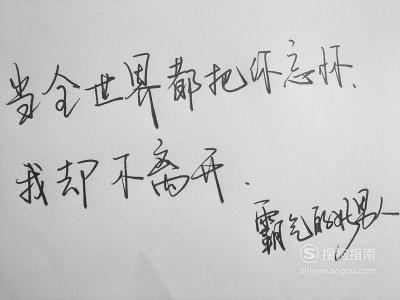 当全世界都把你忘怀.
我却不离开.
霸气的北男人
搜狗指南
zhinan.sogou.com